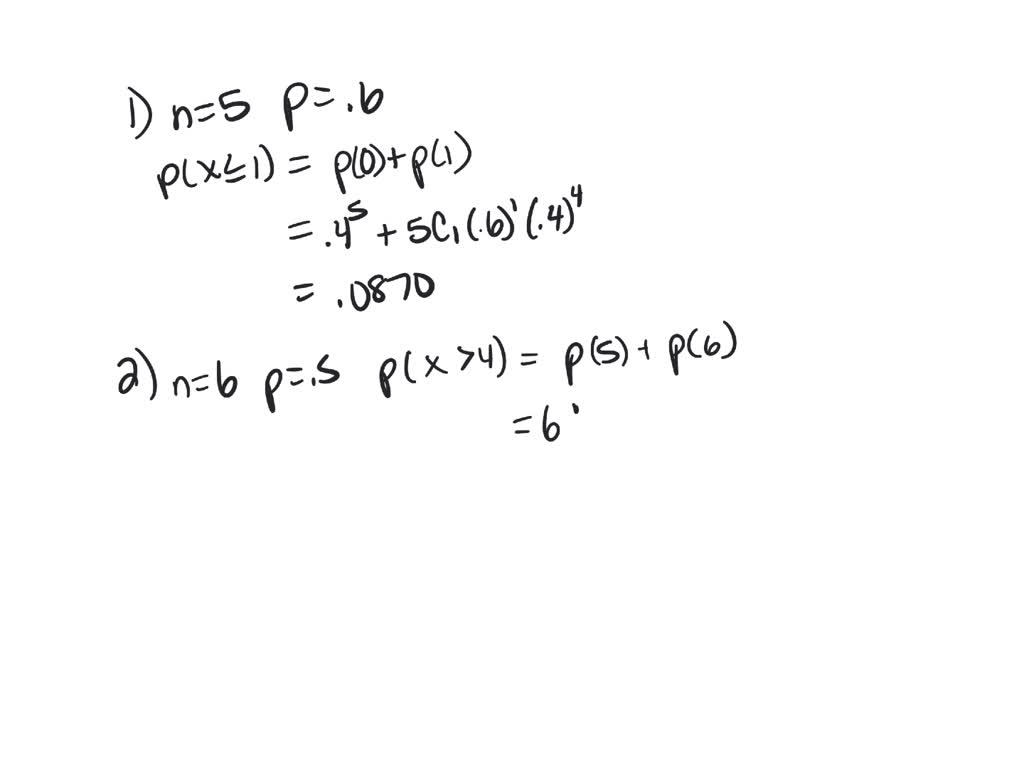 1) n=5 p=.6
p(x≤1) = p(0)+p(1)
= .4⁵ + 5C₁(.6)¹(.4)⁴
= .0870
2) n=6 p=.5 p(x>4) = p(5)+p(6)
= 6